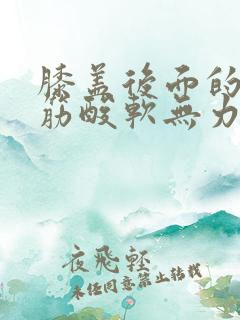 膝盖後面的
筋酸軟無力
夜飛輕
未經同意禁止轉載